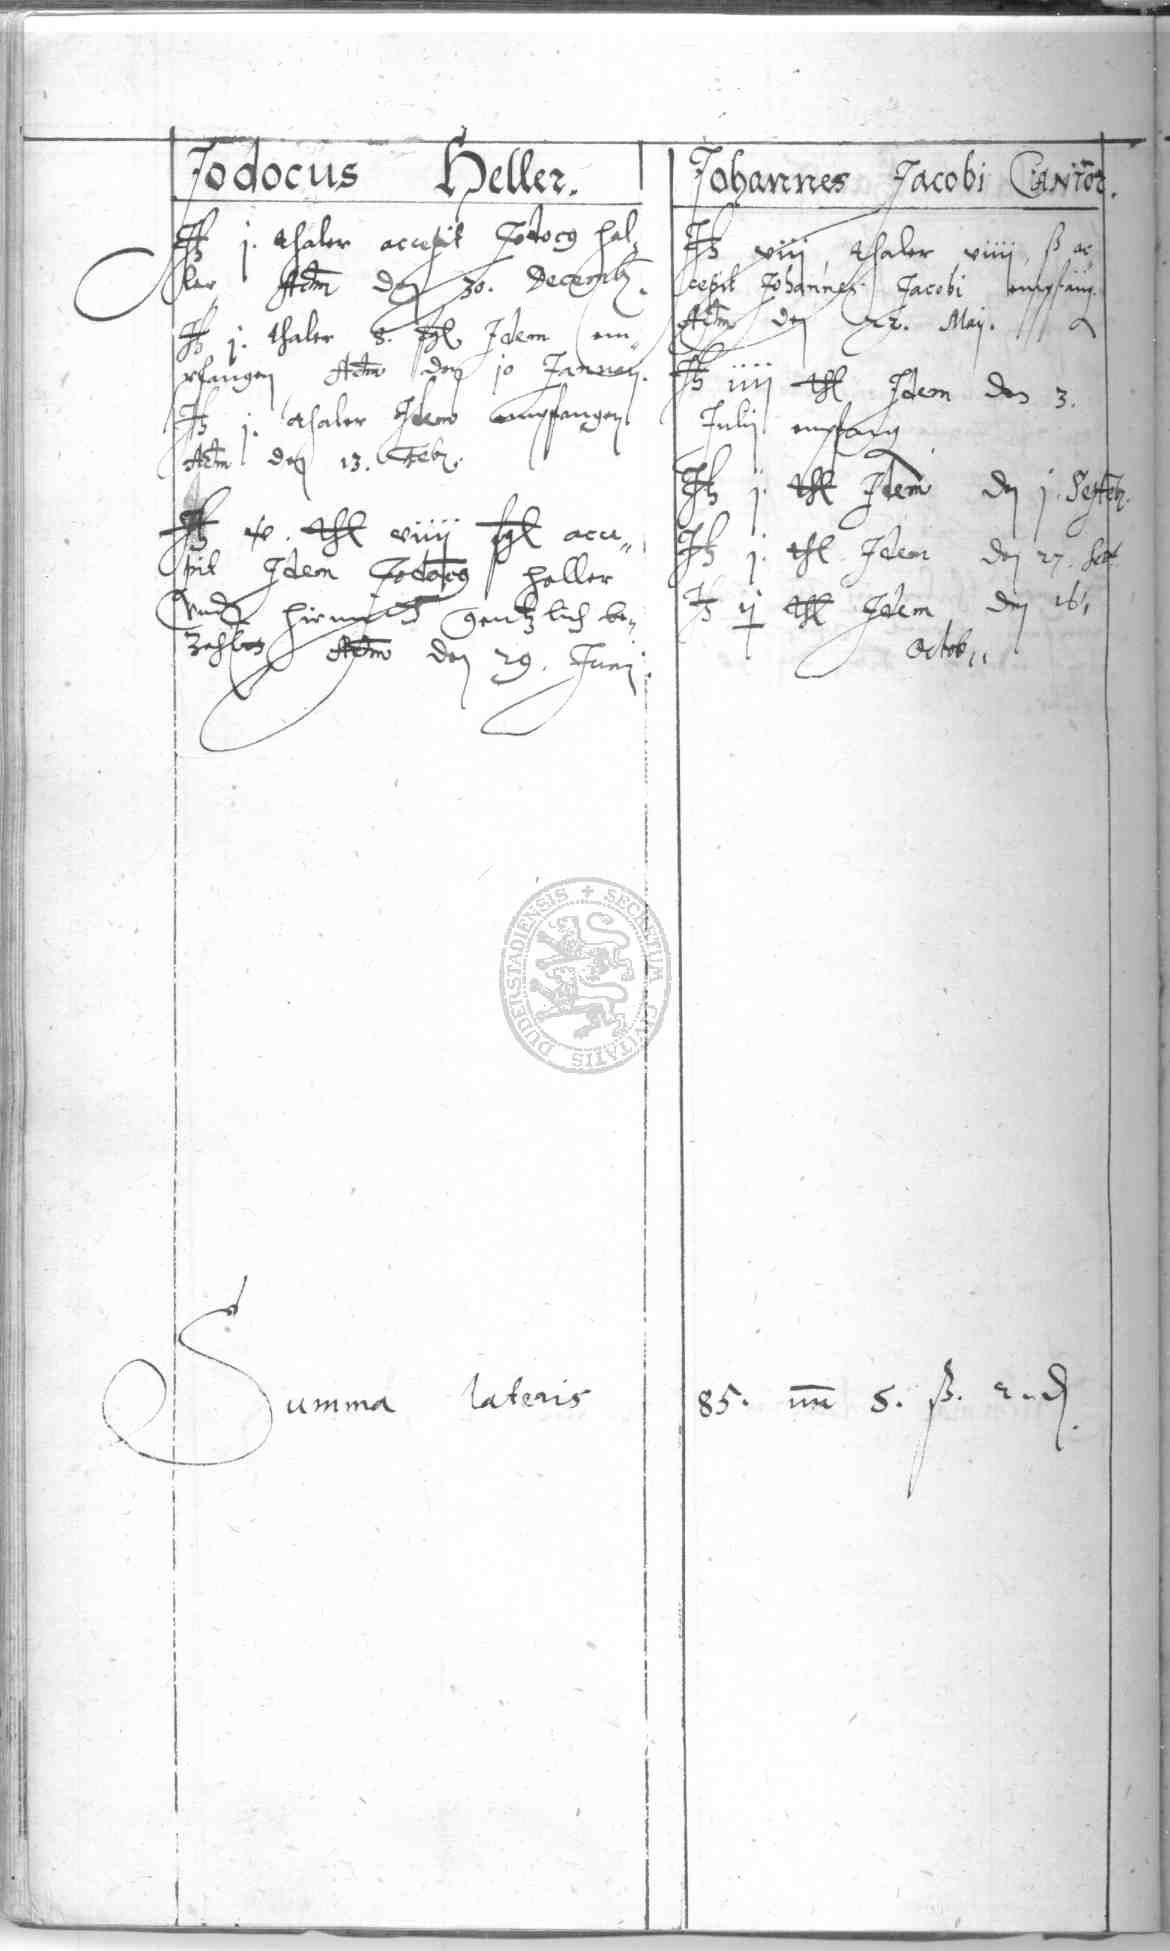 Jodocus Heller.
It j. thaler accepit Jodocg Hal„
ler Actm den 30. Decemb.
It j. thaler 8. fgl Idem em„
pfangen Actm den 10 Januarij.
It j. thaler Idem empfangen
Actm den 13. Feb.
It thl viiij fgl acce„
pit Idem Jodocg Heller
vnd hirmit gentzlich be„
zahlet Actm den 29. Junij.
Johannes Jacobi CANTOR.
It viij, thaler viiij, ß ac
cepit Johannes Jacobi empfang
Actm den 22. Maij.
It iiij thl Idem den 3.
Julij empfang
It j. thl Idem den j. Septeb.
It j. thl Idem den 27. Sept
It ij thl Idem den 16,
Octob„
Summa lateris 85. 5. ß. 2. ₰.
DUDERSTADIENSIS + SECRETUM CIVITATIS